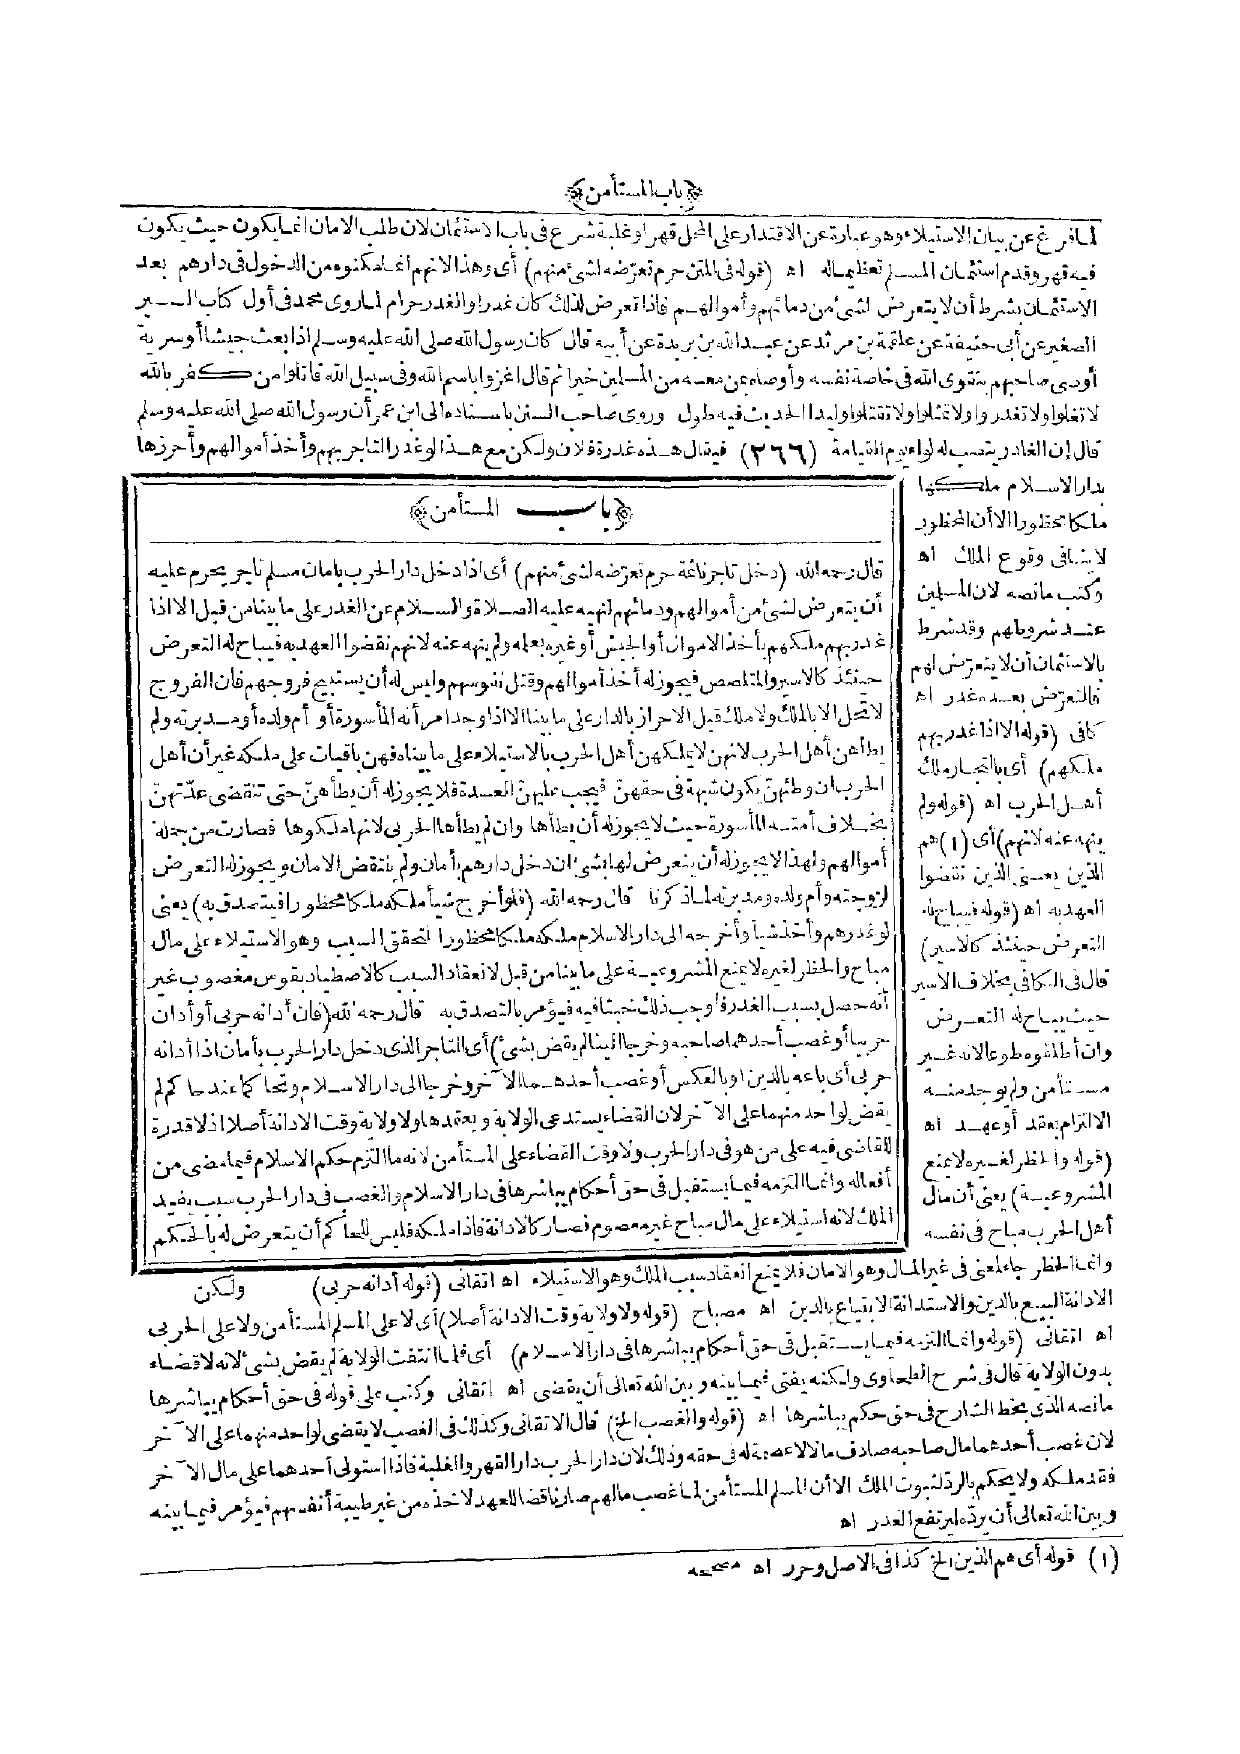 ﴿باب المستأمن﴾
لما فرغ عن بيان الاستيلاء وهو عبارة عن الاقتدار على المحل قهرا وغلبة شرع فى باب الاستئمان لان طلب الامان انما يكون حيث يكون
فيه قهر وقدم استئمان المسلم تعظيما له اه (قوله فى المتن حرم تعرضه لشئ منهم) أى وهذا لانهم انما مكنوه من الدخول فى دارهم بعد
الاستئمان بشرط أن لا يتعرض لشئ من دمائهم وأموالهم فاذا تعرض لذلك كان غدرا والغدر حرام لما روى محمد فى أول كتاب السير
الصغير عن أبى حنيفة عن علقمة بن مرثد عن عبد الله بن بريدة عن أبيه قال كان رسول الله صلى الله عليه وسلم اذا بعث جيشا أو سرية
أوصى صاحبهم بتقوى الله فى خاصة نفسه وأوصاه بمن معه من المسلمين خيرا ثم قال اغزوا باسم الله وفى سبيل الله قاتلوا من كفر بالله
لا تغلوا ولا تغدروا ولا تمثلوا ولا تقتلوا وليدا الحديث فيه طول وروى صاحب السنن باسناده الى ابن عمر أن رسول الله صلى الله عليه وسلم
قال إن الغادر ينصب له لواء يوم القيامة (٢٦٦) فيقال هذه غدرة فلان ولكن مع هذا لو غدر التاجر بهم وأخذ أموالهم وأحرزها
بدار الاسلام ملكها
ملكا محظورا الا أن المحظور
لا ينافى وقوع الملك اه
وكتب ما نصه لان المسلمين
عند شروطهم وقد شرط
بالاستئمان أن لا يتعرض لهم
فالتعرض بعده غدر اه
كافى (قوله الا اذا غدر بهم
ملكهم) أى بالتجار ملك
أهل الحرب اه (قوله ولم
ينهه عنه لانهم) أى (١) هم
الذين يعنى الذين نقضوا
العهد به اه (قوله فيباح له
التعرض حينئذ كالاسير)
قال فى الكافى بخلاف الاسير
حيث يباح له التعرض
وان أطلقوه طوعا لانه غير
مستأمن ولم يوجد منه
الالتزام بعقد أو عهد اه
(قوله والحظر لغيره لا يمنع
المشروعية) يعنى أن مال
أهل الحرب مباح فى نفسه
﴿باب المستأمن﴾
قال رحمه الله (دخل تاجرنا ثمة حرم تعرضه لشئ منهم) أى اذا دخل دار الحرب بامان مسلم تاجر يحرم عليه
أن يتعرض لشئ من أموالهم ودمائهم لنهيه عليه الصلاة والسلام عن الغدر على ما بينا من قبل الا اذا
غدر بهم ملكهم بأخذ الاموال أو الحبس أو غيره بعلمه ولم ينهه عنه لانهم نقضوا العهد به فيباح له التعرض
حينئذ كالاسير والمتلصص فيجوز له أخذ أموالهم وقتل نفوسهم وليس له أن يستبيح فروجهم فان الفروج
لا تحل الا بالملك ولا ملك قبل الاحراز بالدار على ما بينا الا اذا وجد امرأته المأسورة أو أم ولده أو مدبرته ولم
يطأهن أهل الحرب لانهن لا يملكهن أهل الحرب بالاستيلاء على ما بيناه فهن باقيات على ملكه غير أن أهل
الحرب ان وطئهن يكون شبهة فى حقهن فيجب عليهن العدة فلا يجوز له أن يطأهن حتى تنقضى عدتهن
بخلاف أمته المأسورة حيث لا يجوز له أن يطأها وان لم يطأها الحربى لانها ملكوها فصارت من جملة
أموالهم ولهذا لا يجوز له أن يتعرض لها بشئ ان دخل دارهم بأمان ولم ينتقض الامان ويجوز له التعرض
لزوجته وأم ولده ومدبرته لما ذكرنا قال رحمه الله (فلو أخرج شيأ ملكه ملكا محظورا فيتصدق به) يعنى
لو غدرهم وأخذ شيأ وأخرجه الى دار الاسلام ملكه ملكا محظورا لتحقق السبب وهو الاستيلاء على مال
مباح والحظر لغيره لا يمنع المشروعية على ما بينا من قبل لانعقاد السبب كالاصطياد بقوس مغصوب غير
أنه حصل بسبب الغدر فاوجب ذلك خبثا فيه فيؤمر بالتصدق به قال رحمه الله (فان أدانه حربى أو أدان
حربيا أو غصب أحدهما صاحبه وخرجا الينا لم يقض بشئ) أى التاجر الذى دخل دار الحرب بأمان اذا أدانه
حربى أى باعه بالدين أو بالعكس أو غصب أحدهما الآخر وخرجا الى دار الاسلام وتحاكما عند حاكم لم
يقض لواحد منهما على الآخر لان القضاء يستدعى الولاية ويعتمدها ولا ولاية وقت الادانة أصلا اذ لا قدرة
للقاضى فيه على من هو فى دار الحرب ولا وقت القضاء على المستأمن لانه ما التزم حكم الاسلام فيما مضى من
أفعاله وانما التزمه فيما يستقبل فى حق أحكام يباشرها فى دار الاسلام والغصب فى دار الحرب سبب يفيد
الملك لانه استيلاء على مال مباح غير معصوم فصار كالادانة فاذا ملكه فليس للحاكم أن يتعرض له بالحكم
وانما الحظر جاء لمعنى فى غير المال وهو الامان فلا يمنع انعقاد سبب الملك وهو الاستيلاء اه اتقانى (قوله أدانه حربى) ولكن
الادانة البيع بالدين والاستدانة الابتياع بالدين اه مصباح (قوله ولا ولاية وقت الادانة أصلا) أى لا على المسلم المستأمن ولا على الحربى
اه اتقانى (قوله وانما التزمه فيما يستقبل فى حق أحكام يباشرها فى دار الاسلام) أى فلما انتفت الولاية لم يقض بشئ لانه لا قضاء
بدون الولاية قال فى شرح الطحاوى ولكنه يفتى فيما بينه وبين الله تعالى أن يقضى اه اتقانى وكتب على قوله فى حق أحكام يباشرها
ما نصه الذى بخط الشارح فى حق حكم يباشرها اه (قوله والغصب الخ) قال الاتقانى وكذلك فى الغصب لا يقضى لواحد منهما على الآخر
لان غصب أحدهما مال صاحبه صادف مالا لا عصمة له فى حقه وذلك لان دار الحرب دار القهر والغلبة فاذا استولى أحدهما على مال الآخر
فقد ملكه ولا يحكم بالرد لثبوت الملك الا أن المسلم المستأمن لما غصب مالهم صار ناقضا للعهد لاخذه من غير طيبة أنفسهم فيؤمر فيما بينه
وبين الله تعالى أن يرده ليرتفع الغدر اه
(١) قوله أى هم الذين الخ كذا فى الاصل وحرر اه مصححه